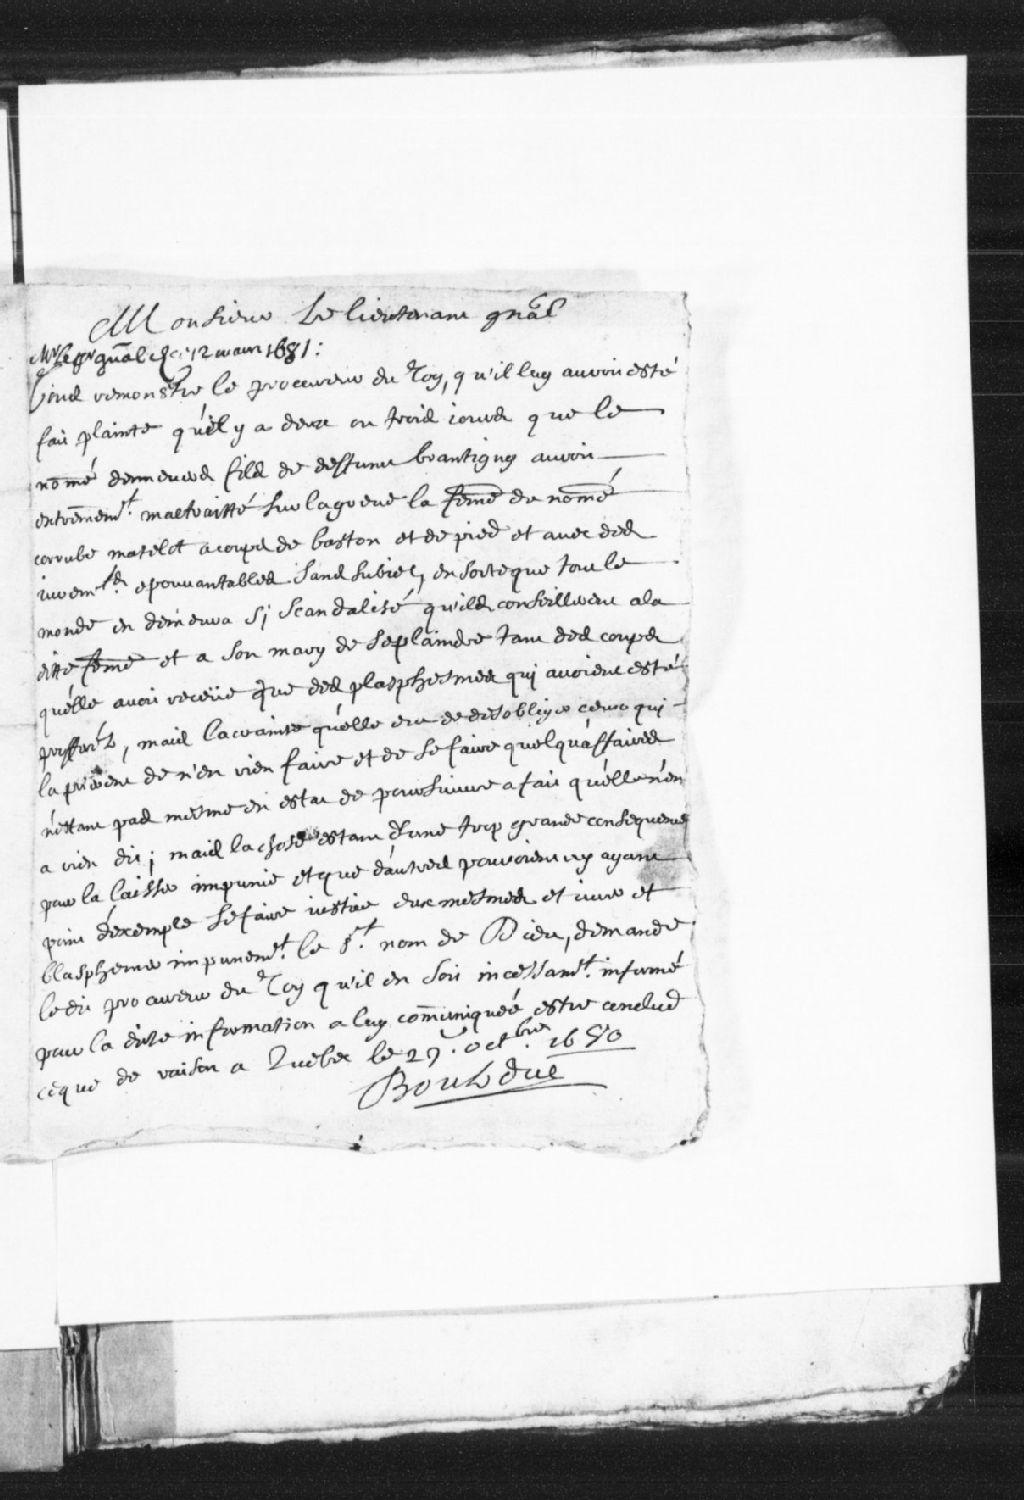 Monsieur Le lieutenant gnãl
Mr le pr gnãl ce 12 mars 1681:
Vous remonstre le procureur du Roy, qu'il luy auroit esté
fait plainte qu'il y a deux ou trois iours que le
nõmé demeures fils de deffunt brantigny auroit
extrememt. maltraitté sur la greve la fẽme du nõmé
corrube matelot a coups de baston et de pied et avec des
iuremts. epouuantables sans subiet, en sorte que tout le
monde en demeura si scandalisé qu'ils conseillerent a la
ditte fẽme et a son mary de se plaindre tant des coups
qu'elle avoit receüe que des plasphesmes qui avoient esté
proferés, mais la crainte qu'elle eut de desobliger ceux qui
la prierent de n'en rien faire et de se faire quelqu'affaires
n'estant pas mesme en estat de poursuivre a fait qu'elle n'en
a rien dit; mais la chose estant d'une trop grande consequence
pour la laisser impunie et que d'autres pouroient y ayant
point d'exemple se faire iustice eux mesmes et iurer et
blasphemer impunemt. le St. nom de Dieu, demande
ledit procureur du Roy qu'il en soit incessamt. informé
pour la ditte information a luy cõmuniqueé estre conclud
ce que de raison a Quebec le 27. octbre 1680
Boulduc